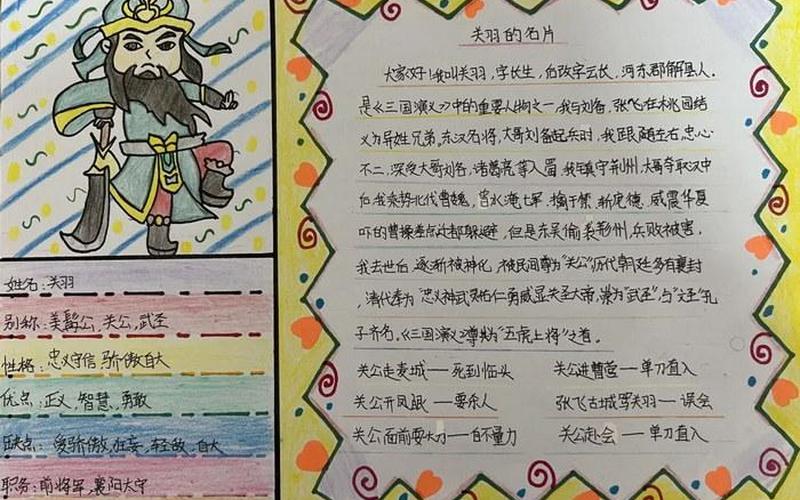 关羽的名片
大家好！我叫关羽，字长生，后改字云长，河东郡解县人.
是《三国演义》中的重要人物之一，我与刘备，张飞在桃园结
义为异姓兄弟，东汉名将，大哥刘备起兵时，我跟随左右，忠心
不二，深受大哥刘备，诸葛亮等入蜀，我镇守荆州，大哥夺取汉中
后我乘势北伐曹魏，水淹七军，擒于禁，斩庞德，威震华夏
吓的曹操差点迁都躲避，但是东吴偷袭荆州，兵败被害.
我去世后，逐渐被神化，被民间尊为"关公"历代朝廷多有褒封
，清代奉为"忠义神武灵佑仁勇威显关圣大帝，崇为"武圣"，与"文圣"孔
子齐名，《三国演义》尊其为"五虎上将"之首.
关公走麦城——死到临头 关公进曹营——单刀直入
关公开凤眼——要杀人 张飞古城骂关羽——误会
关公面前耍大刀——自不量力 关公赴会——单刀直入
姓名:关羽
别称:美髯公，关公，武圣
性格:忠义守信 骄傲自大
优点:正义，智慧，勇敢
缺点:爱骄傲，狂妄，轻敌，自大
职务:前将军，襄阳太守